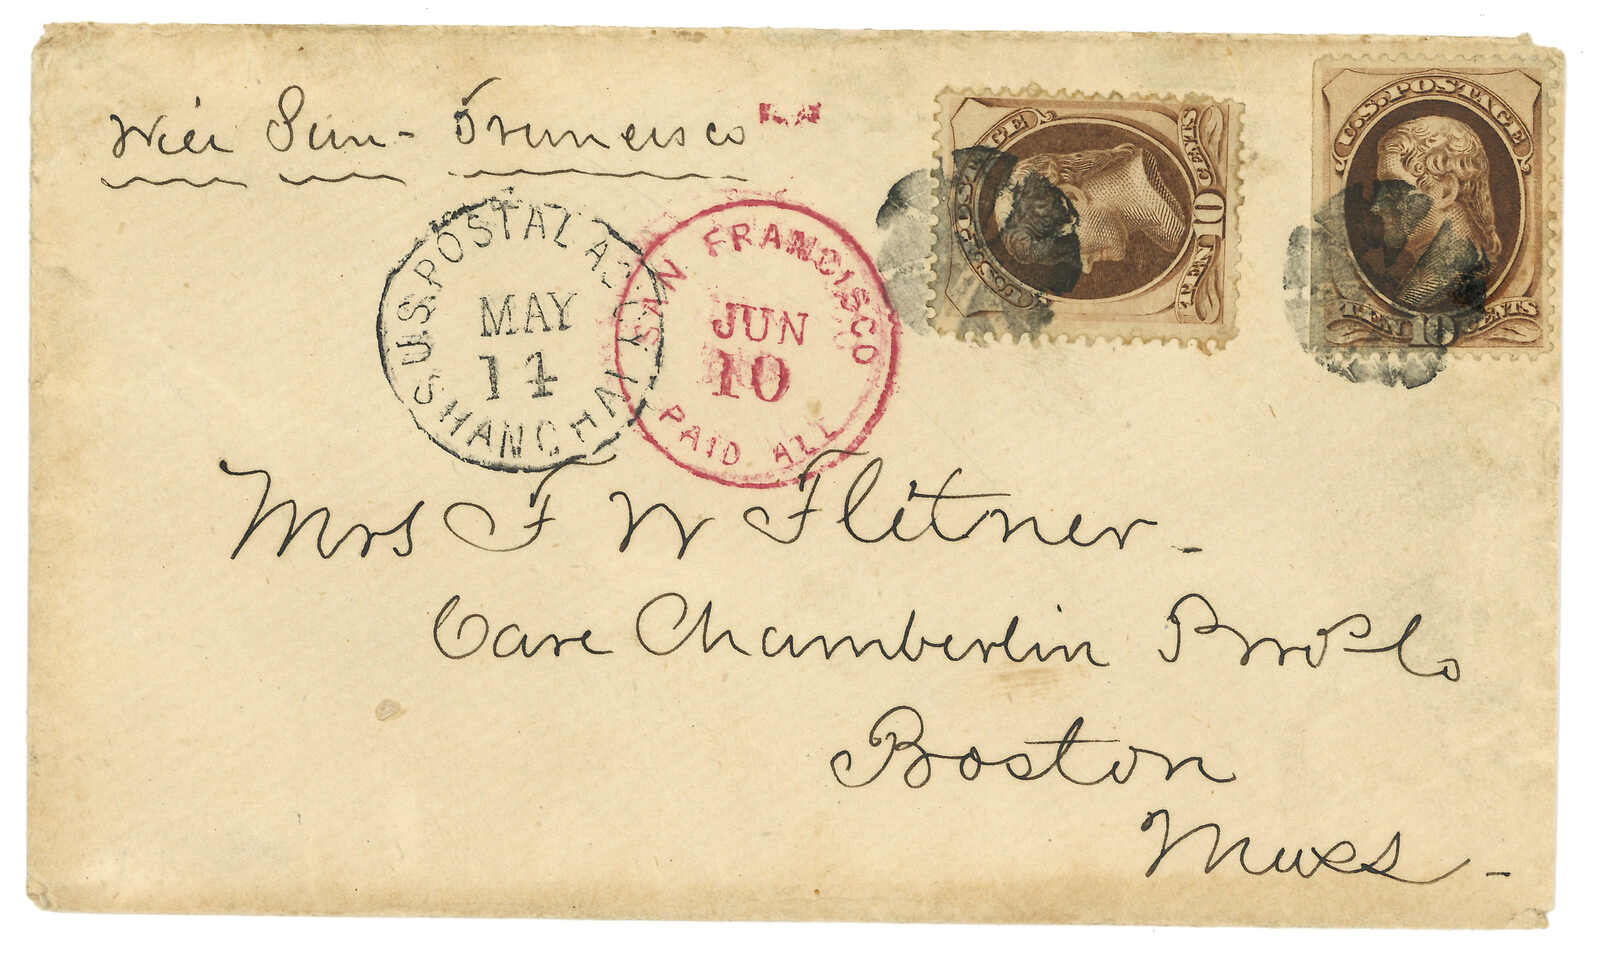 Via San-Francisco
U.S. POSTAL AGCY
MAY
14
SHANGHAI
SAN FRANCISCO
JUN
10
PAID ALL
U.S. POSTAGE
TEN 10 CENTS
U.S. POSTAGE
TEN 10 CENTS
Mrs F W Flitner-
Care Chamberlin Bros & Co
Boston
Mass-